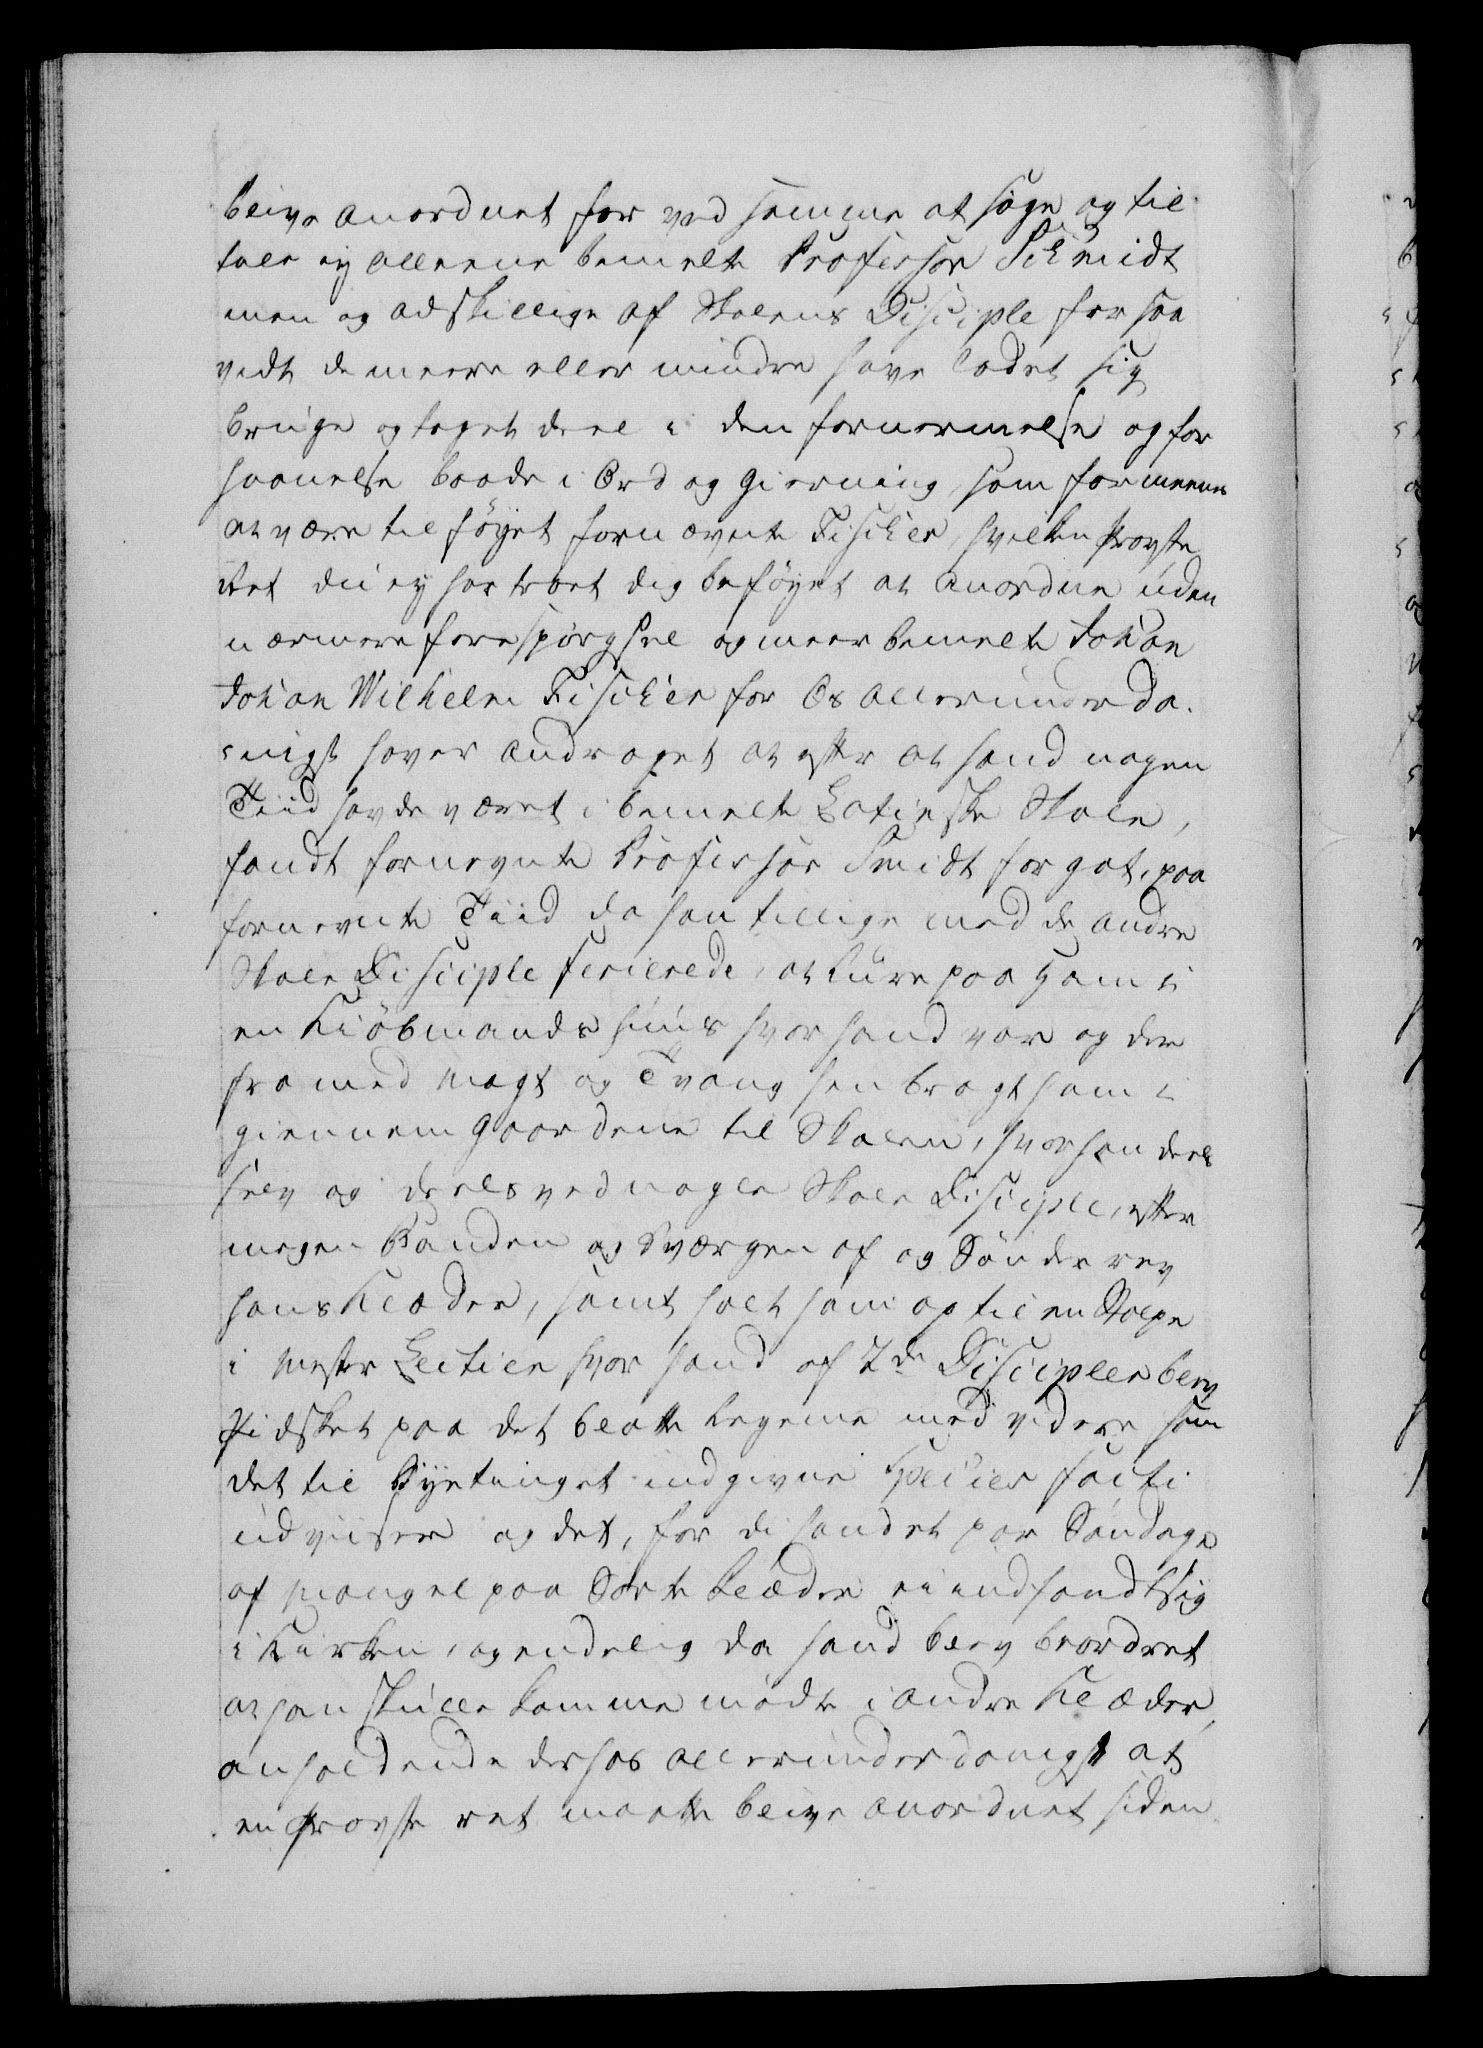 blive anordnet for ved samme at søge og til
tale ey alleene bemelte Professor Schmidt
men og adskillige af Skolens Disciple for saa
vidt de meere eller mindre have ladet sig
bruge og taget deel i den fornermelse og for
haanelse baade i Ord og Gierning, som formeenes
at være tilføyet fornævnte Fischer, hvilken Provste
Ret du ey har troet dig beføyet at anordne uden
nærmere forespørgsel og meerbemelte Johan
Johan Wilhelm Fischer for Os allerunderda-
nigst haver andraget at efter at hand nogen
Tiid havde været i bemelte Latinske Skole,
fandt fornevnte Professor Smidt for got, paa
fornevnte Tiid da han tillige med de andre
Skole Disciple ferierede, at lure paa ham i
en Kiøbmands Huus hvor hand var og der
fra med Magt og Tvang henbragt ham i
giennem Gaardene til Skolen, hvor han deels
selv og deels ved nogle Skole Disciple, efter
megen Banden og Sværgen af og Sønderrev
hans Klæder, samt holt ham op til en Stolpe
i Mester Lectien hvor hand af 2de Discipler blev
Pidsket paa det blotte Legeme med videre som
det til Byetinget indgivne Species facti
udviiser og det, fordi hand et par Søndage
af Mangel paa Sorte Klæder ei indfandt sig
i Kirken, og endelig da hand blev beordret
at han skulle komme møde i andre Klæder,
anholdende derhos allerunderdanigst at
en Provste ret maatte blive anordnet siden